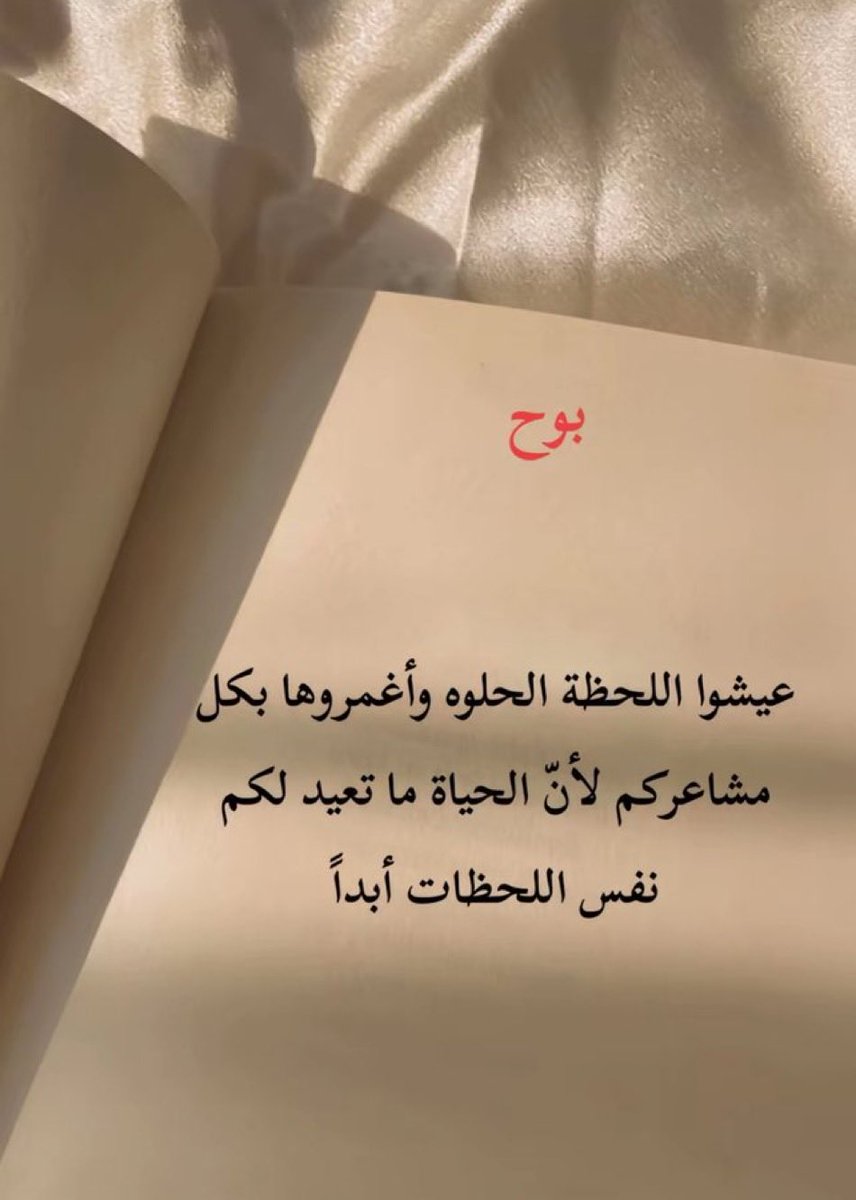 بوح
عيشوا اللحظة الحلوه وأغمروها بكل
مشاعركم لأنّ الحياة ما تعيد لكم
نفس اللحظات أبداً